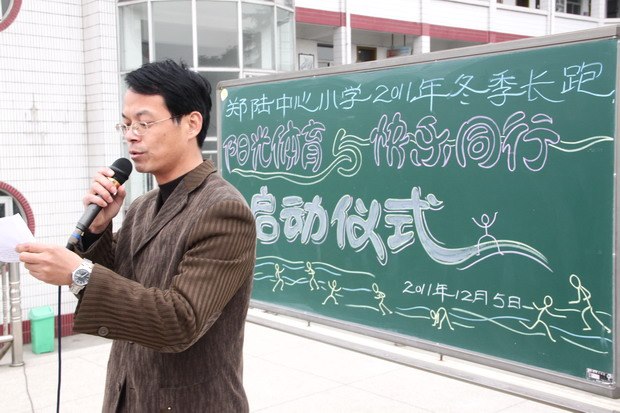 郑陆中心小学2011年冬季长跑
阳光体育与快乐同行
启动仪式
2011年12月5日